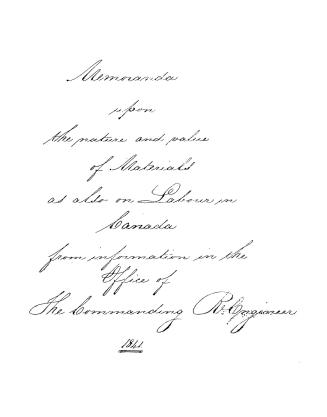 Memoranda
upon
the nature and value
of Materials
as also on Labour in
Canada
from information in the
Office of
The Commanding Rl. Engineer
1841